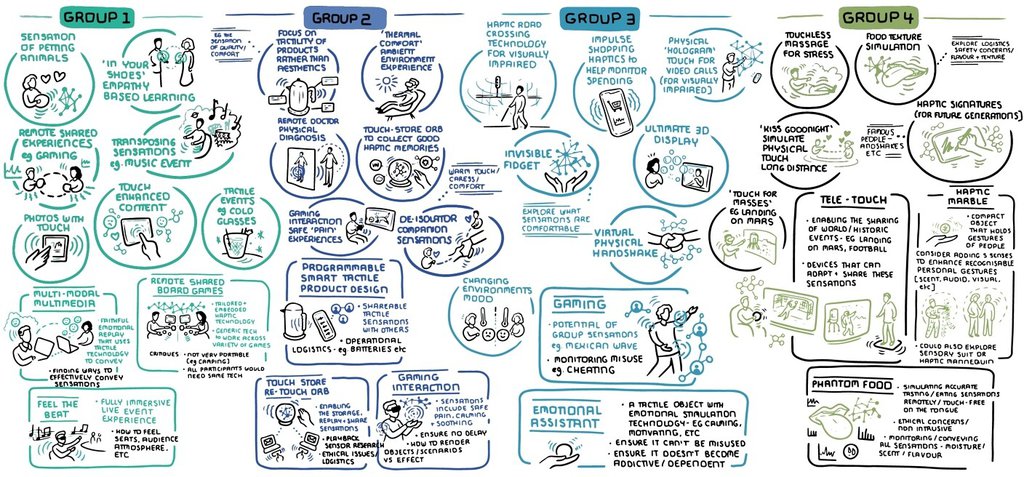 GROUP 1
SENSATION
OF PETTING
ANIMALS
'IN YOUR
SHOES'
EMPATHY
BASED LEARNING
REMOTE SHARED
EXPERIENCES
eg GAMING
TRANSPOSING
SENSATIONS
eg. MUSIC EVENT
PHOTOS WITH
TOUCH
TOUCH
ENHANCED
CONTENT
TACTILE
EVENTS
eg COLD
GLASSES
MULTI-MODAL
MULTIMEDIA
FAITHFUL
EMOTIONAL
REPLAY
THAT USES
TACTILE
TECHNOLOGY
TO CONVEY
• FINDING WAYS TO
EFFECTIVELY CONVEY
SENSATIONS
REMOTE SHARED
BOARD GAMES
• TAILORED +
EMBEDDED
HAPTIC
TECHNOLOGY
• GENERIC TECH
TO WORK ACROSS
VARIETY OF GAMES
CRITIQUES
• NOT VERY PORTABLE
(eg CAMPING)
• ALL PARTICIPANTS WOULD
NEED SAME TECH
FEEL THE
BEAT
• FULLY IMMERSIVE
LIVE EVENT
EXPERIENCE
• HOW TO FEEL
SEATS, AUDIENCE
ATMOSPHERE,
ETC
GROUP 2
EG THE
SENSATION
OF QUALITY/
COMFORT
FOCUS ON
TACTILITY OF
PRODUCTS
RATHER THAN
AESTHETICS
'THERMAL
COMFORT'
AMBIENT
ENVIRONMENT
EXPERIENCE
REMOTE DOCTOR
PHYSICAL
DIAGNOSIS
TOUCH-STORE ORB
TO COLLECT GOOD
HAPTIC MEMORIES
WARM TOUCH/
CARESS/
COMFORT
GAMING
INTERACTION
SAFE 'PAIN'
EXPERIENCES
DE-ISOLATOR
COMPANION
SENSATIONS
PROGRAMMABLE
SMART TACTILE
PRODUCT DESIGN
• SHAREABLE
TACTILE
SENSATIONS
WITH OTHERS
• OPERATIONAL
LOGISTICS - eg. BATTERIES etc
TOUCH STORE
RE-TOUCH ORB
• ENABLING
THE STORAGE,
REPLAY + SHARE
SENSATIONS
• PLAYBACK
SENSOR RESEARCH
• ETHICAL ISSUES/
LOGISTICS
GAMING
INTERACTION
• SENSATIONS
INCLUDE SAFE
PAIN, CALMING
+ SOOTHING
• ENSURE NO DELAY
• HOW TO RENDER
OBJECTS/SCENARIOS
VS EFFECT
GROUP 3
HAPTIC ROAD
CROSSING
TECHNOLOGY
FOR VISUALLY
IMPAIRED
IMPULSE
SHOPPING
HAPTICS to
HELP MONITOR
SPENDING
PHYSICAL
'HOLOGRAM'
TOUCH FOR
VIDEO CALLS
(FOR VISUALLY
IMPAIRED)
INVISIBLE
FIDGET
ULTIMATE 3D
DISPLAY
EXPLORE WHAT
SENSATIONS ARE
COMFORTABLE
VIRTUAL
PHYSICAL
HANDSHAKE
'TOUCH FOR
MASSES'
EG LANDING
ON MARS
CHANGING
ENVIRONMENTS
MOOD
GAMING
• POTENTIAL OF
GROUP SENSATIONS
eg. MEXICAN WAVE
• MONITORING MISUSE
eg. CHEATING
EMOTIONAL
ASSISTANT
• A TACTILE OBJECT WITH
EMOTIONAL STIMULATION
TECHNOLOGY - EG CALMING,
MOTIVATING, ETC
• ENSURE IT CAN'T BE MISUSED
• ENSURE IT DOESN'T BECOME
ADDICTIVE/DEPENDENT
GROUP 4
TOUCHLESS
MASSAGE
FOR STRESS
FOOD TEXTURE
SIMULATION
EXPLORE LOGISTICS
SAFETY CONCERNS/
FLAVOUR + TEXTURE
'KISS GOODNIGHT'
SIMULATE
PHYSICAL
TOUCH
LONG DISTANCE
FAMOUS
PEOPLE-
HANDSHAKES
ETC
HAPTIC SIGNATURES
(FOR FUTURE GENERATIONS)
TELE-TOUCH
• ENABLING THE SHARING
OF WORLD/HISTORIC
EVENTS - EG LANDING
ON MARS, FOOTBALL
• DEVICES THAT CAN
ADAPT + SHARE THESE
SENSATIONS
HAPTIC
MARBLE
• COMPACT
OBJECT
THAT HOLDS
GESTURES
OF PEOPLE
CONSIDER ADDING 5 SENSES
TO ENHANCE RECOGNISABLE
PERSONAL GESTURES
(SCENT, AUDIO, VISUAL,
etc)
• COULD ALSO EXPLORE
SENSORY SUIT OR
HAPTIC MANNEQUIN
PHANTOM FOOD
• SIMULATING ACCURATE
TASTING/EATING SENSATIONS
REMOTELY/TOUCH-FREE
ON THE TONGUE
• ETHICAL CONCERNS/
NON INTRUSIVE
• MONITORING/CONVEYING
ALL SENSATIONS - MOISTURE/
SCENT/FLAVOUR